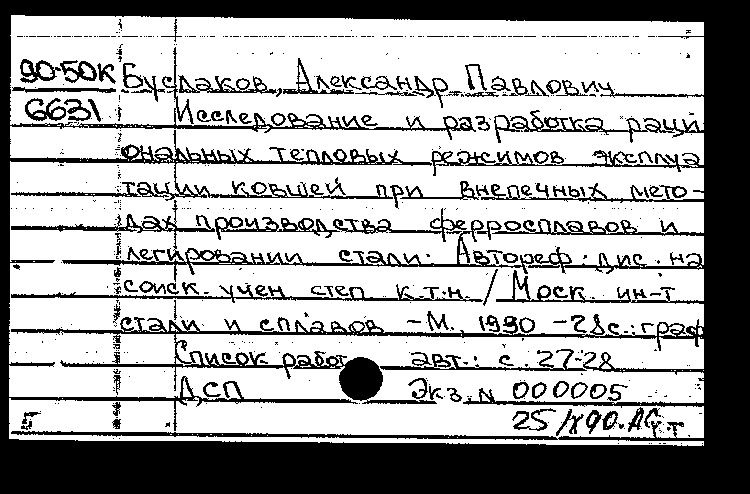 90-50К Буслаков, Александр Павлович
6631 Исследование и разработка раци
ональных тепловых режимов эксплуа
тации ковшей при внепечных мето-
дах производства ферросплавов и
легировании стали. Автореф. дис. на
соиск. учен степ к.т.н. / Моск. ин-т
стали и сплавов - М., 1990 - 28с.: граф
Список работ авт.: с. 27-28
ДСП Экз. N 000005